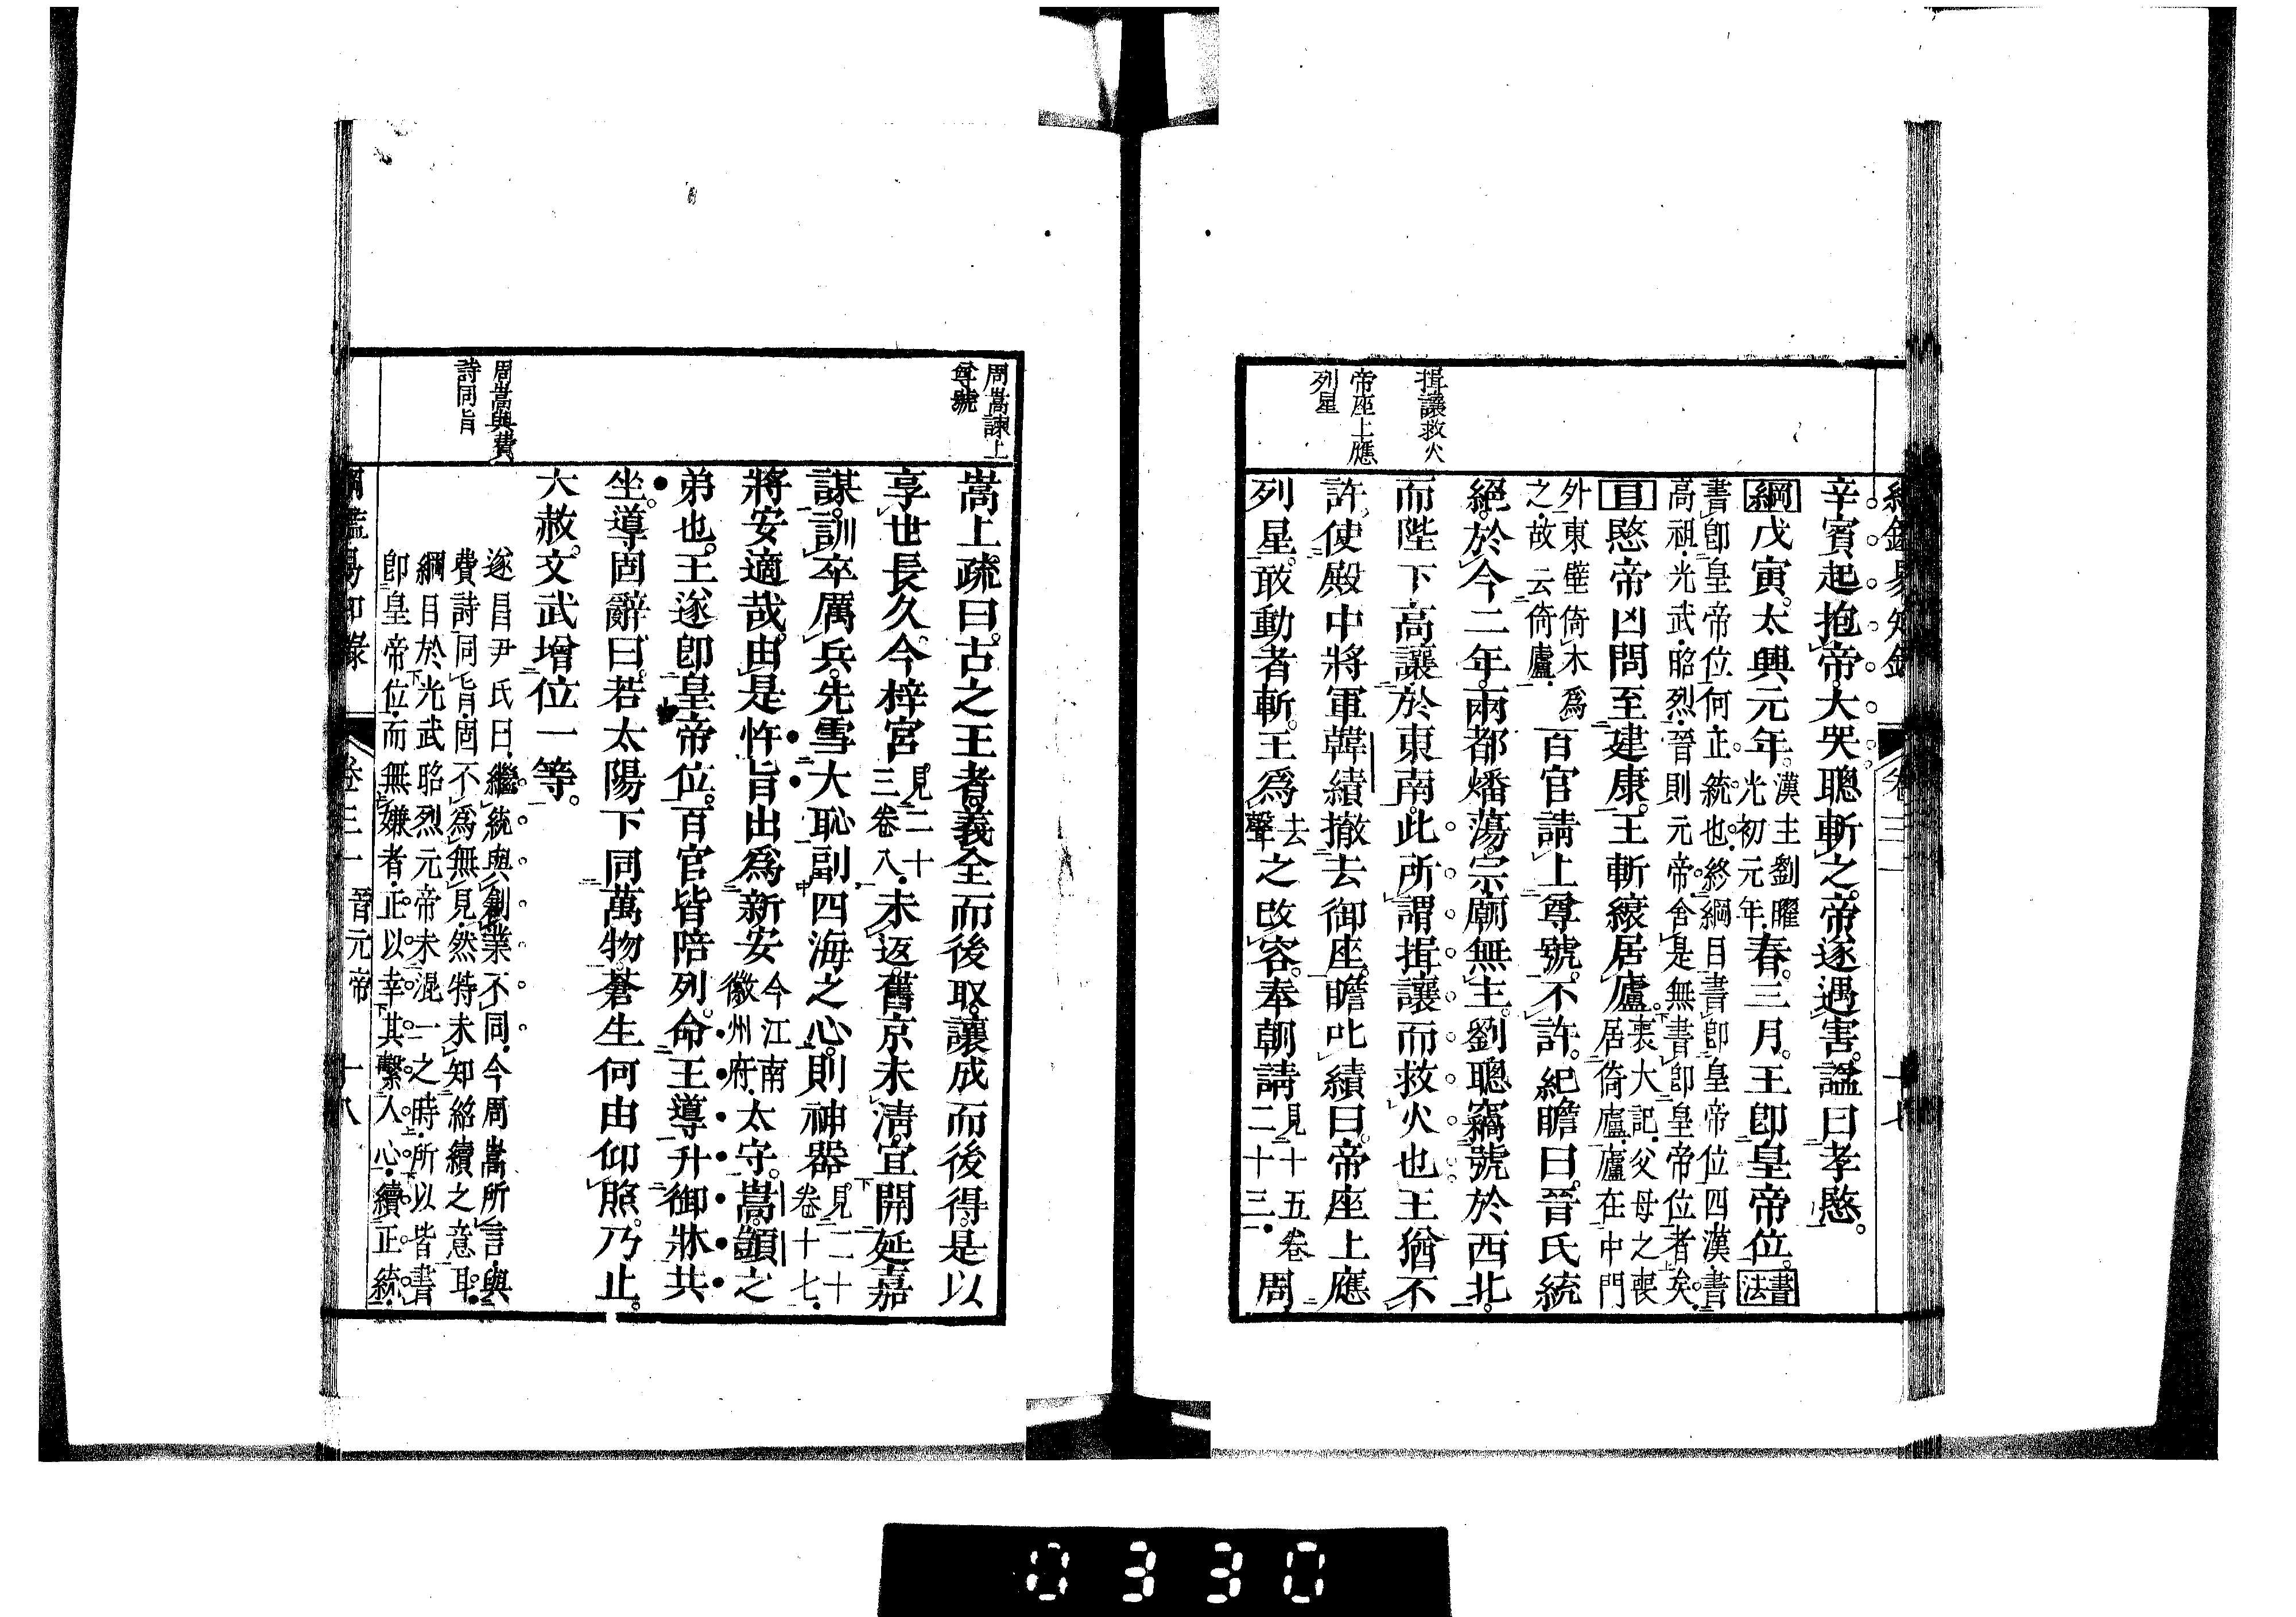 揖讓救火
帝座上應
列星
辛賓起抱帝大哭。聰斬之。帝遂遇害。諡曰孝愍。
綱戊寅。太興元年。漢主劉曜光初元年。春。三月。王卽皇帝位。書法
書卽皇帝位何。正統也。終綱目書卽皇帝位四。漢書
高祖・光武・昭烈・晉則元帝。舍是無書卽皇帝位者矣。
目愍帝凶問至建康。王斬縗居廬。喪大記。父母之喪居倚廬。廬在中門
外東壁。倚木爲之。故云倚廬。百官請上尊號。不許。紀瞻曰。晉氏統
絕。於今二年。兩都燔蕩。宗廟無主。劉聰竊號於西北。
而陛下高讓於東南。此所謂揖讓而救火也。王猶不
許。使殿中將軍韓績撤去御座。瞻叱績曰。帝座上應
列星。敢動者斬。王爲去聲之改容。奉朝請見二十五卷二十三。周
周嵩諫上
尊號
周嵩與費
詩同旨
嵩上疏曰。古之王者。義全而後取。讓成而後得。是以
享世長久。今梓宮見二十三卷八。未返。舊京未淸。宜開延嘉
謀。訓卒厲兵。先雪大恥。副四海之心。則神器見二十卷十七。
將安適哉。由是忤旨。出爲新安今江南徽州府。太守。嵩。顗之
弟也。王遂卽皇帝位。百官皆陪列。命王導升御牀共
坐。導固辭曰。若太陽下同萬物。蒼生何由仰照。乃止。
大赦。文武增位一等。
遂昌尹氏曰。繼統與創業不同。今周嵩所言。與
費詩同旨。固不爲無見。然特未知紹續之意耳。
綱目於光武昭烈元帝未混一之時。所以皆書
卽皇帝位。而無嫌者。正以幸其繫人心。續正統。
綱鑑易知錄 卷三一 晉元帝 十八